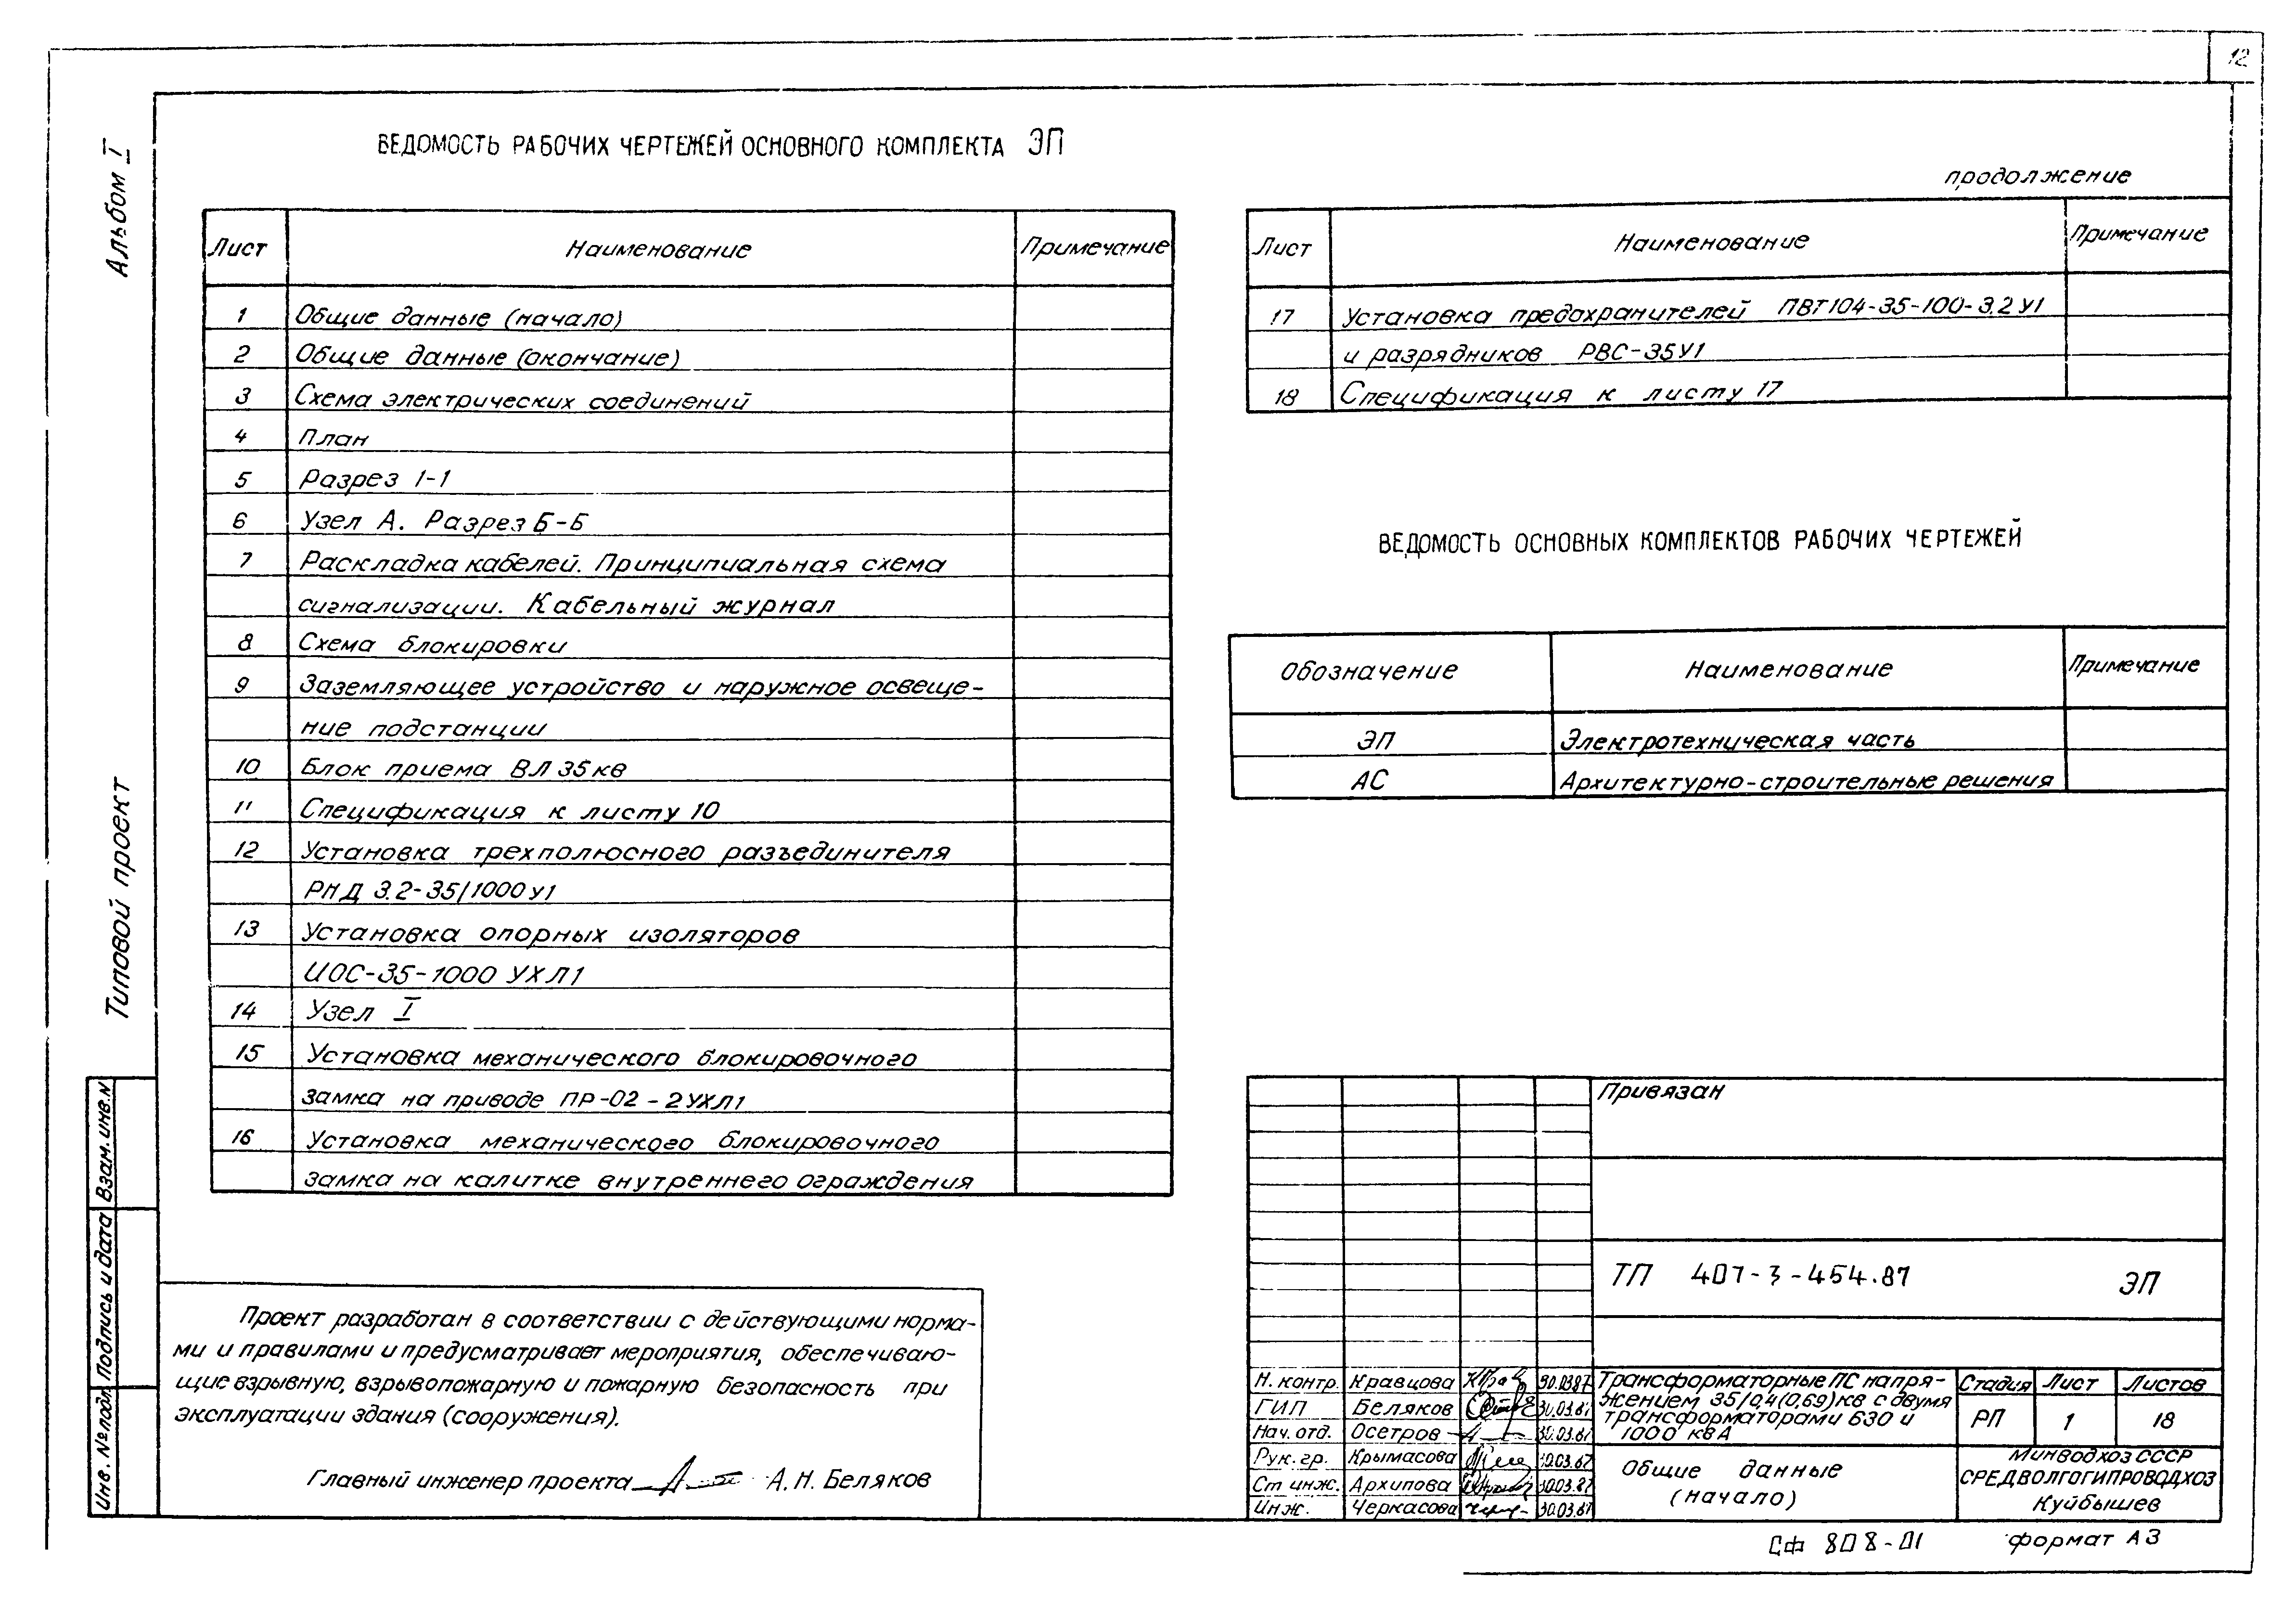 12
Альбом I
Типовой проект
Взам. инв. N
Подпись и дата
Инв. № подл.
ВЕДОМОСТЬ РАБОЧИХ ЧЕРТЕЖЕЙ ОСНОВНОГО КОМПЛЕКТА ЭП
Лист Наименование Примечание
1 Общие данные (начало)
2 Общие данные (окончание)
3 Схема электрических соединений
4 План
5 Разрез 1-1
6 Узел А. Разрез Б-Б
7 Раскладка кабелей. Принципиальная схема
сигнализации. Кабельный журнал
8 Схема блокировки
9 Заземляющее устройство и наружное освеще-
ние подстанции
10 Блок приема ВЛ 35 кв
11 Спецификация к листу 10
12 Установка трехполюсного разъединителя
РНД 3.2-35/1000 У1
13 Установка опорных изоляторов
ИОС-35-1000 УХЛ1
14 Узел I
15 Установка механического блокировочного
замка на приводе ПР-02-2УХЛ1
16 Установка механического блокировочного
замка на калитке внутреннего ограждения
продолжение
Лист Наименование Примечание
17 Установка предохранителей ПВТ104-35-100-3.2 У1
и разрядников РВС-35У1
18 Спецификация к листу 17
ВЕДОМОСТЬ ОСНОВНЫХ КОМПЛЕКТОВ РАБОЧИХ ЧЕРТЕЖЕЙ
Обозначение Наименование Примечание
ЭП Электротехническая часть
АС Архитектурно-строительные решения
Проект разработан в соответствии с действующими норма-
ми и правилами и предусматривает мероприятия, обеспечиваю-
щие взрывную, взрывопожарную и пожарную безопасность при
эксплуатации здания (сооружения).
Главный инженер проекта А. Н. Беляков
Привязан
ТП 407-3-454.87 ЭП
Н. контр. Кравцова 30.03.87
ГИП Беляков 30.03.87
Нач. отд. Осетров 30.03.87
Рук. гр. Крымасова 30.03.87
Ст инж. Архипова 30.03.87
Инж. Черкасова 30.03.87
Трансформаторные ПС напря-
жением 35/0,4(0,69) кв с двумя
трансформаторами 630 и
1000 кВА
Стадия Лист Листов
РП 1 18
Общие данные
(начало)
Минводхоз СССР
СРЕДВОЛГОГИПРОВОДХОЗ
Куйбышев
СФ 808-01 формат А3